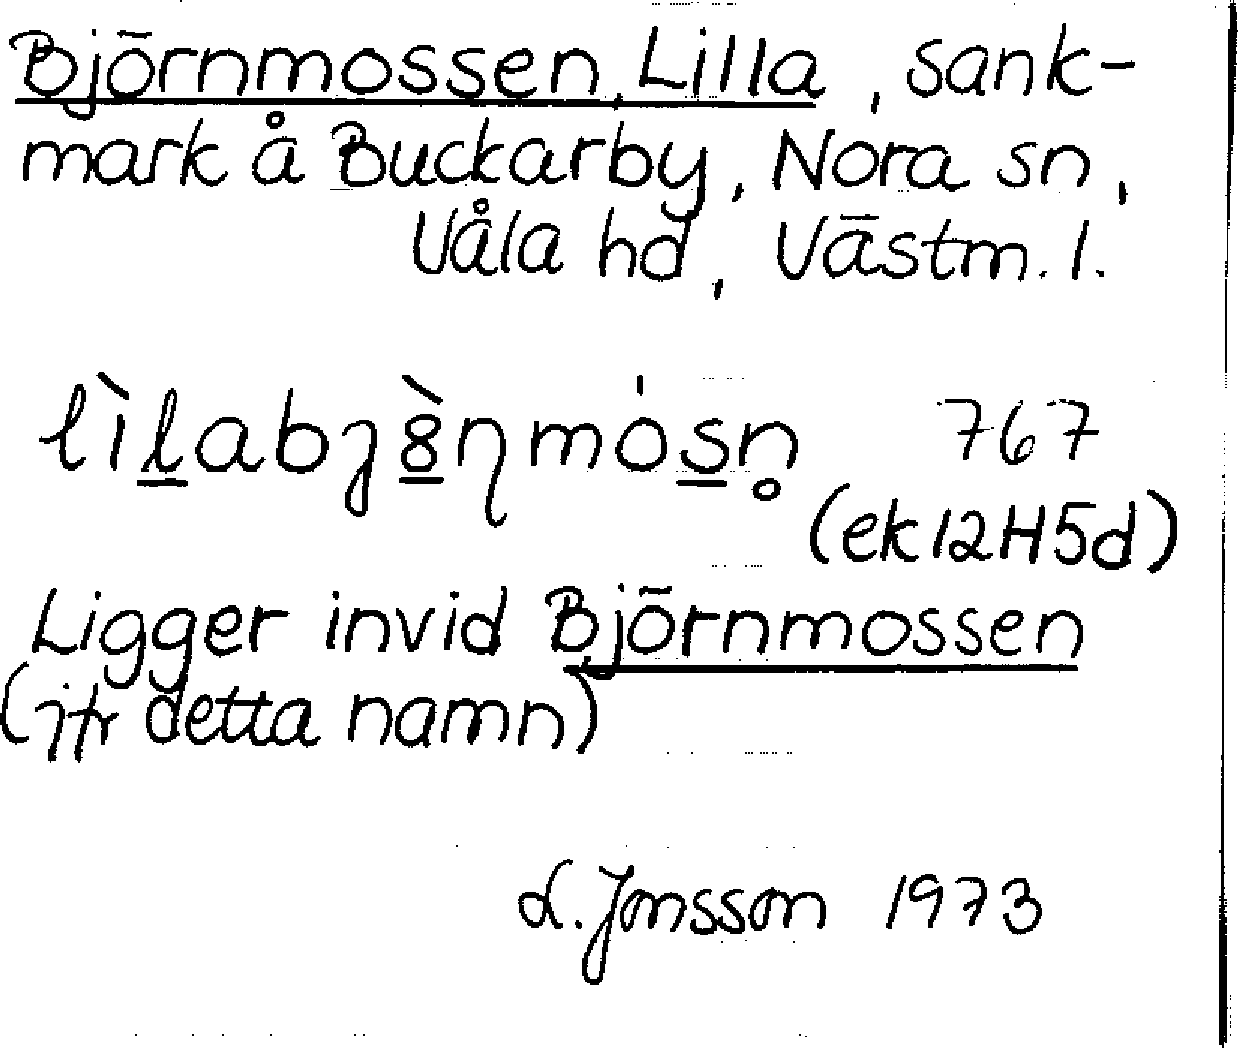 Björnmossen, Lilla, sank-
mark å Buckarby, Nora sn,
Våla hd, Västm. l.
767
(ek 12H5d)
Ligger invid Björnmossen
(jfr detta namn)
L. Jonsson 1973